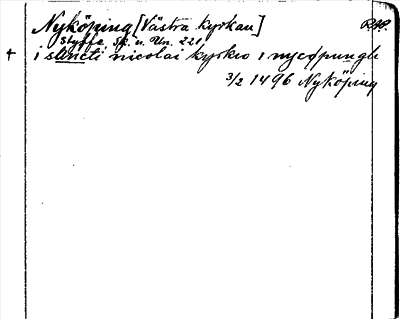 Nyköping [Västra kyrkan]
Styffe Sk. u. Un. 221
+ i sancti nicolai kyrkio i nycopungh
3/2 1496 Nyköping